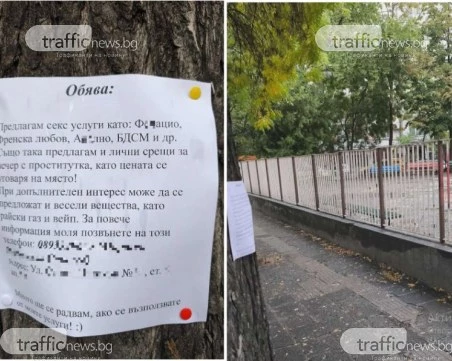 trafficnews.bg
trafficnews.bg
Обява:
Предлагам секс услуги като:
френска любов, БДСМ и др.
Също така предлагам и лични срещи за
вечер с проститутка, като цената се
договаря на място!
При допълнителен интерес може да се
предложат и весели вещества, като
райски газ и вейп. За повече
информация моля позвънете на този
телефон: 0893
Ул. №
се радвам, ако се възползвате
услуги! :)
trafficnews.bg
trafficnews.bg